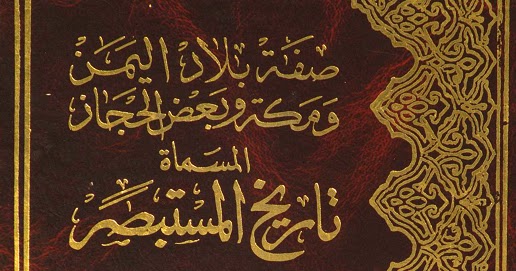 صفة بلاد اليمن
ومكة وبعض الحجاز
المسماة
تاريخ المستبصر